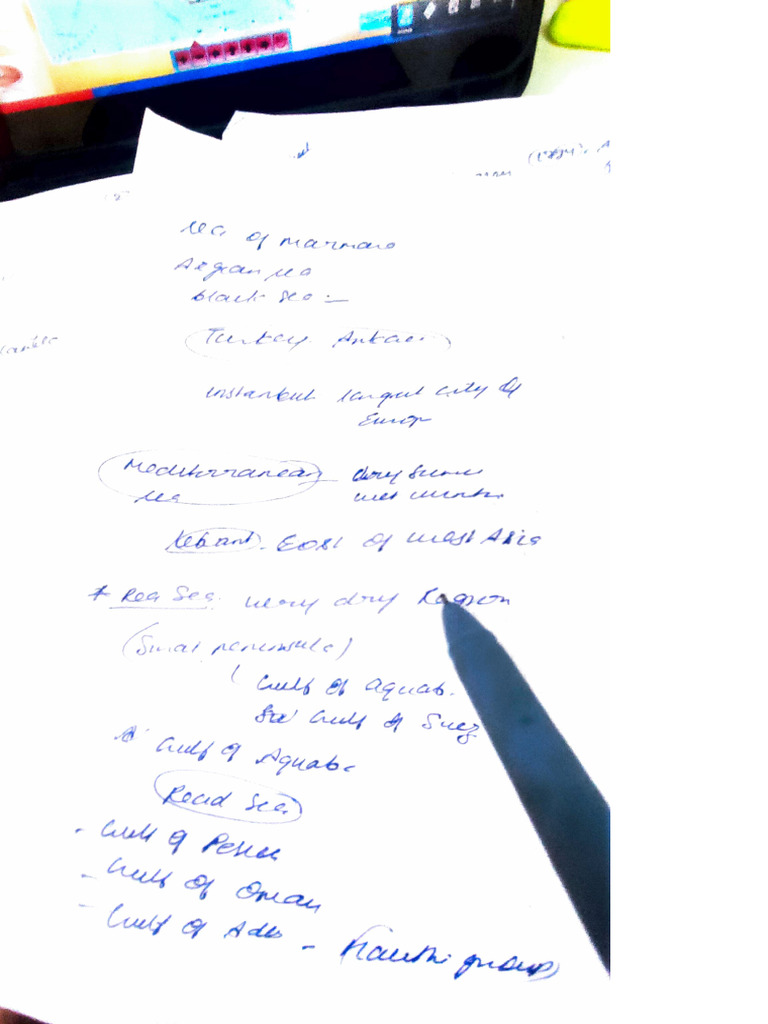 (1884). A
Sea of Marmara
Aegean sea
black sea :-
Turkey. Ankara
instanbul largest city of
Europ
Mediterranean dry summer
sea wet winter
East of west Asia
* Red Sea. very dry Region
(Sinai peninsula)
Gulf of aquab.
Gulf of Suez
Gulf of Aquaba
Read Sea
- Gulf of
- Gulf of Oman
- Gulf of Aden - (Hauthi group)